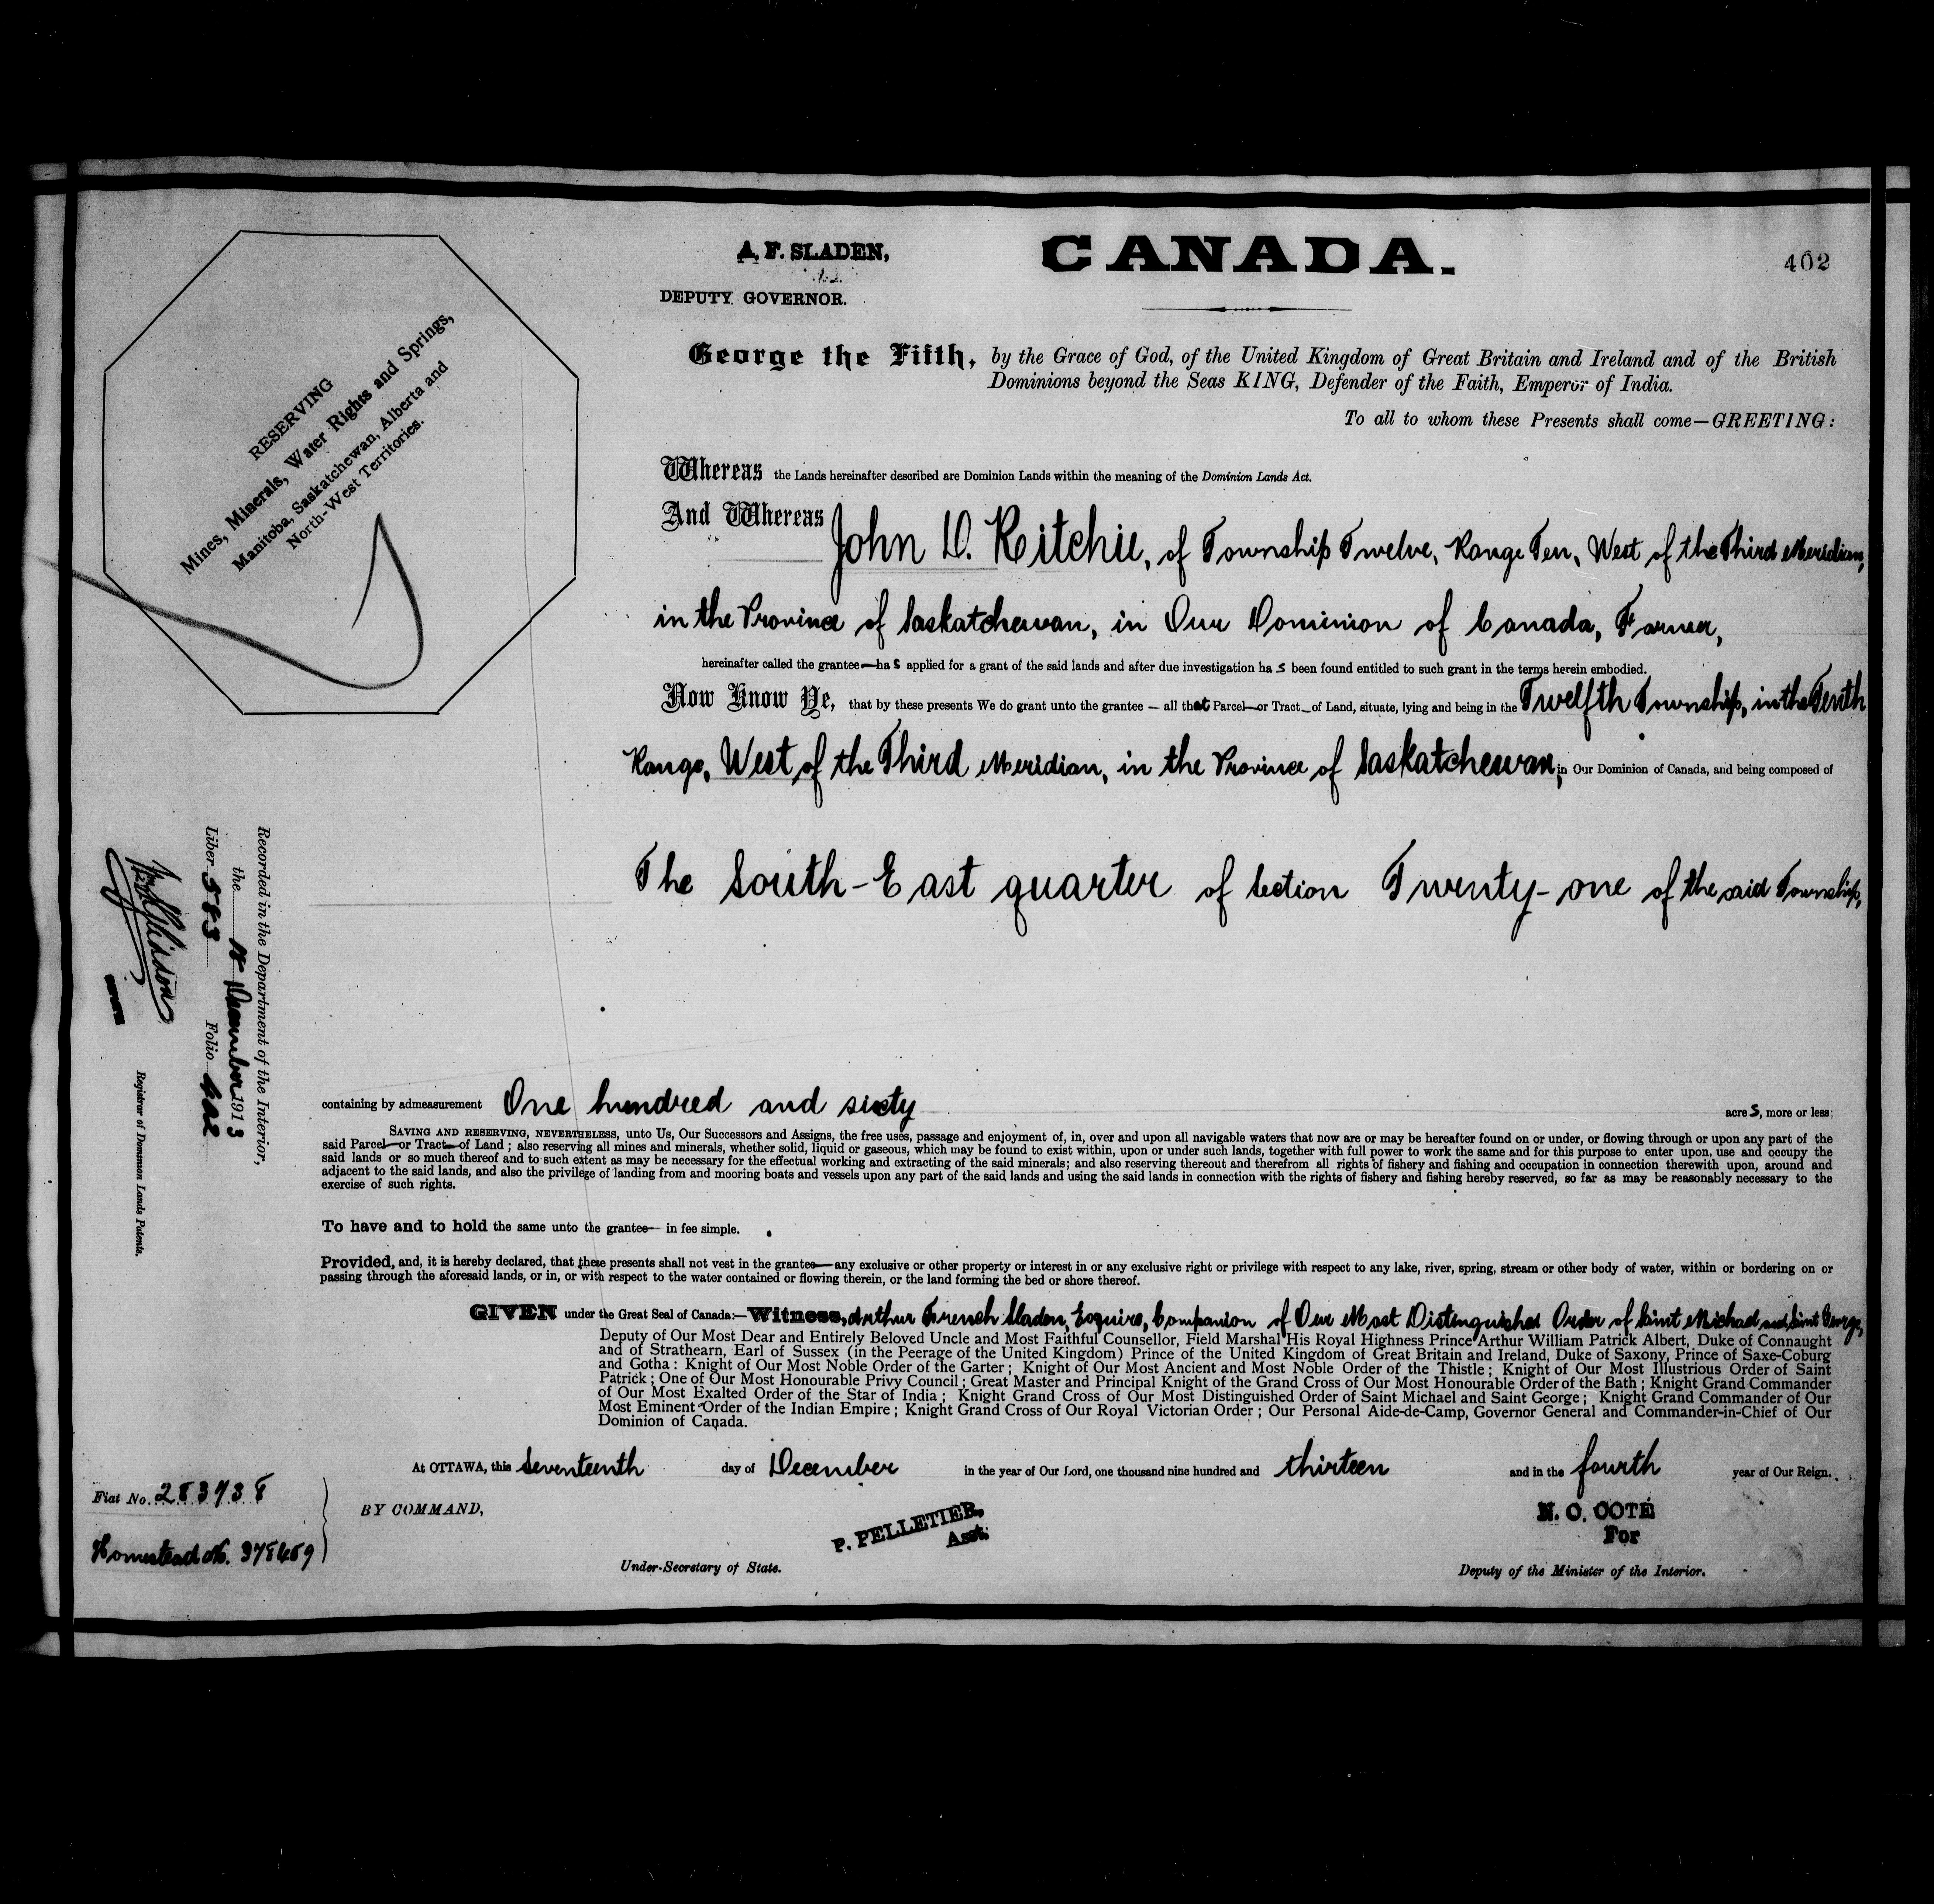 A. F. SLADEN,
DEPUTY GOVERNOR.
CANADA.
402
RESERVING
Mines, Minerals, Water Rights and Springs,
Manitoba, Saskatchewan, Alberta and
North-West Territories.
George the Fifth, by the Grace of God, of the United Kingdom of Great Britain and Ireland and of the British
Dominions beyond the Seas KING, Defender of the Faith, Emperor of India.
To all to whom these Presents shall come—GREETING:
Whereas the Lands hereinafter described are Dominion Lands within the meaning of the Dominion Lands Act.
And Whereas John D. Ritchie, of Township Twelve, Range Ten, West of the Third Meridian,
in the Province of Saskatchewan, in Our Dominion of Canada, Farmer,
hereinafter called the grantee—ha s applied for a grant of the said lands and after due investigation ha s been found entitled to such grant in the terms herein embodied.
Now Know Ye, that by these presents We do grant unto the grantee — all that Parcel—or Tract—of Land, situate, lying and being in the Twelfth Township, in the Tenth
Range, West of the Third Meridian, in the Province of Saskatchewan, in Our Dominion of Canada, and being composed of
The South-East quarter of Section Twenty-one of the said Township,
containing by admeasurement One hundred and sixty acres, more or less;
SAVING AND RESERVING, NEVERTHELESS, unto Us, Our Successors and Assigns, the free uses, passage and enjoyment of, in, over and upon all navigable waters that now are or may be hereafter found on or under, or flowing through or upon any part of the
said Parcel—or Tract—of Land ; also reserving all mines and minerals, whether solid, liquid or gaseous, which may be found to exist within, upon or under such lands, together with full power to work the same and for this purpose to enter upon, use and occupy the
said lands or so much thereof and to such extent as may be necessary for the effectual working and extracting of the said minerals; and also reserving thereout and therefrom all rights of fishery and fishing and occupation in connection therewith upon, around and
adjacent to the said lands, and also the privilege of landing from and mooring boats and vessels upon any part of the said lands and using the said lands in connection with the rights of fishery and fishing hereby reserved, so far as may be reasonably necessary to the
exercise of such rights.
To have and to hold the same unto the grantee— in fee simple.
Provided, and, it is hereby declared, that these presents shall not vest in the grantee—any exclusive or other property or interest in or any exclusive right or privilege with respect to any lake, river, spring, stream or other body of water, within or bordering on or
passing through the aforesaid lands, or in, or with respect to the water contained or flowing therein, or the land forming the bed or shore thereof.
GIVEN under the Great Seal of Canada:—Witness, Arthur French Sladen, Esquire, Companion of Our Most Distinguished Order of Saint Michael and Saint George,
Deputy of Our Most Dear and Entirely Beloved Uncle and Most Faithful Counsellor, Field Marshal His Royal Highness Prince Arthur William Patrick Albert, Duke of Connaught
and of Strathearn, Earl of Sussex (in the Peerage of the United Kingdom) Prince of the United Kingdom of Great Britain and Ireland, Duke of Saxony, Prince of Saxe-Coburg
and Gotha : Knight of Our Most Noble Order of the Garter ; Knight of Our Most Ancient and Most Noble Order of the Thistle ; Knight of Our Most Illustrious Order of Saint
Patrick ; One of Our Most Honourable Privy Council ; Great Master and Principal Knight of the Grand Cross of Our Most Honourable Order of the Bath ; Knight Grand Commander
of Our Most Exalted Order of the Star of India ; Knight Grand Cross of Our Most Distinguished Order of Saint Michael and Saint George ; Knight Grand Commander of Our
Most Eminent Order of the Indian Empire ; Knight Grand Cross of Our Royal Victorian Order ; Our Personal Aide-de-Camp, Governor General and Commander-in-Chief of Our
Dominion of Canada.
At OTTAWA, this Seventeenth day of December in the year of Our Lord, one thousand nine hundred and thirteen and in the fourth year of Our Reign.
BY COMMAND,
P. PELLETIER,
Asst.
Under-Secretary of State.
N. O. COTE
For
Deputy of the Minister of the Interior.
Fiat No. 283738
Homestead No. 978469
Recorded in the Department of the Interior,
the December 1913
Liber 583 Folio 402
Registrar of Dominion Lands Patents.